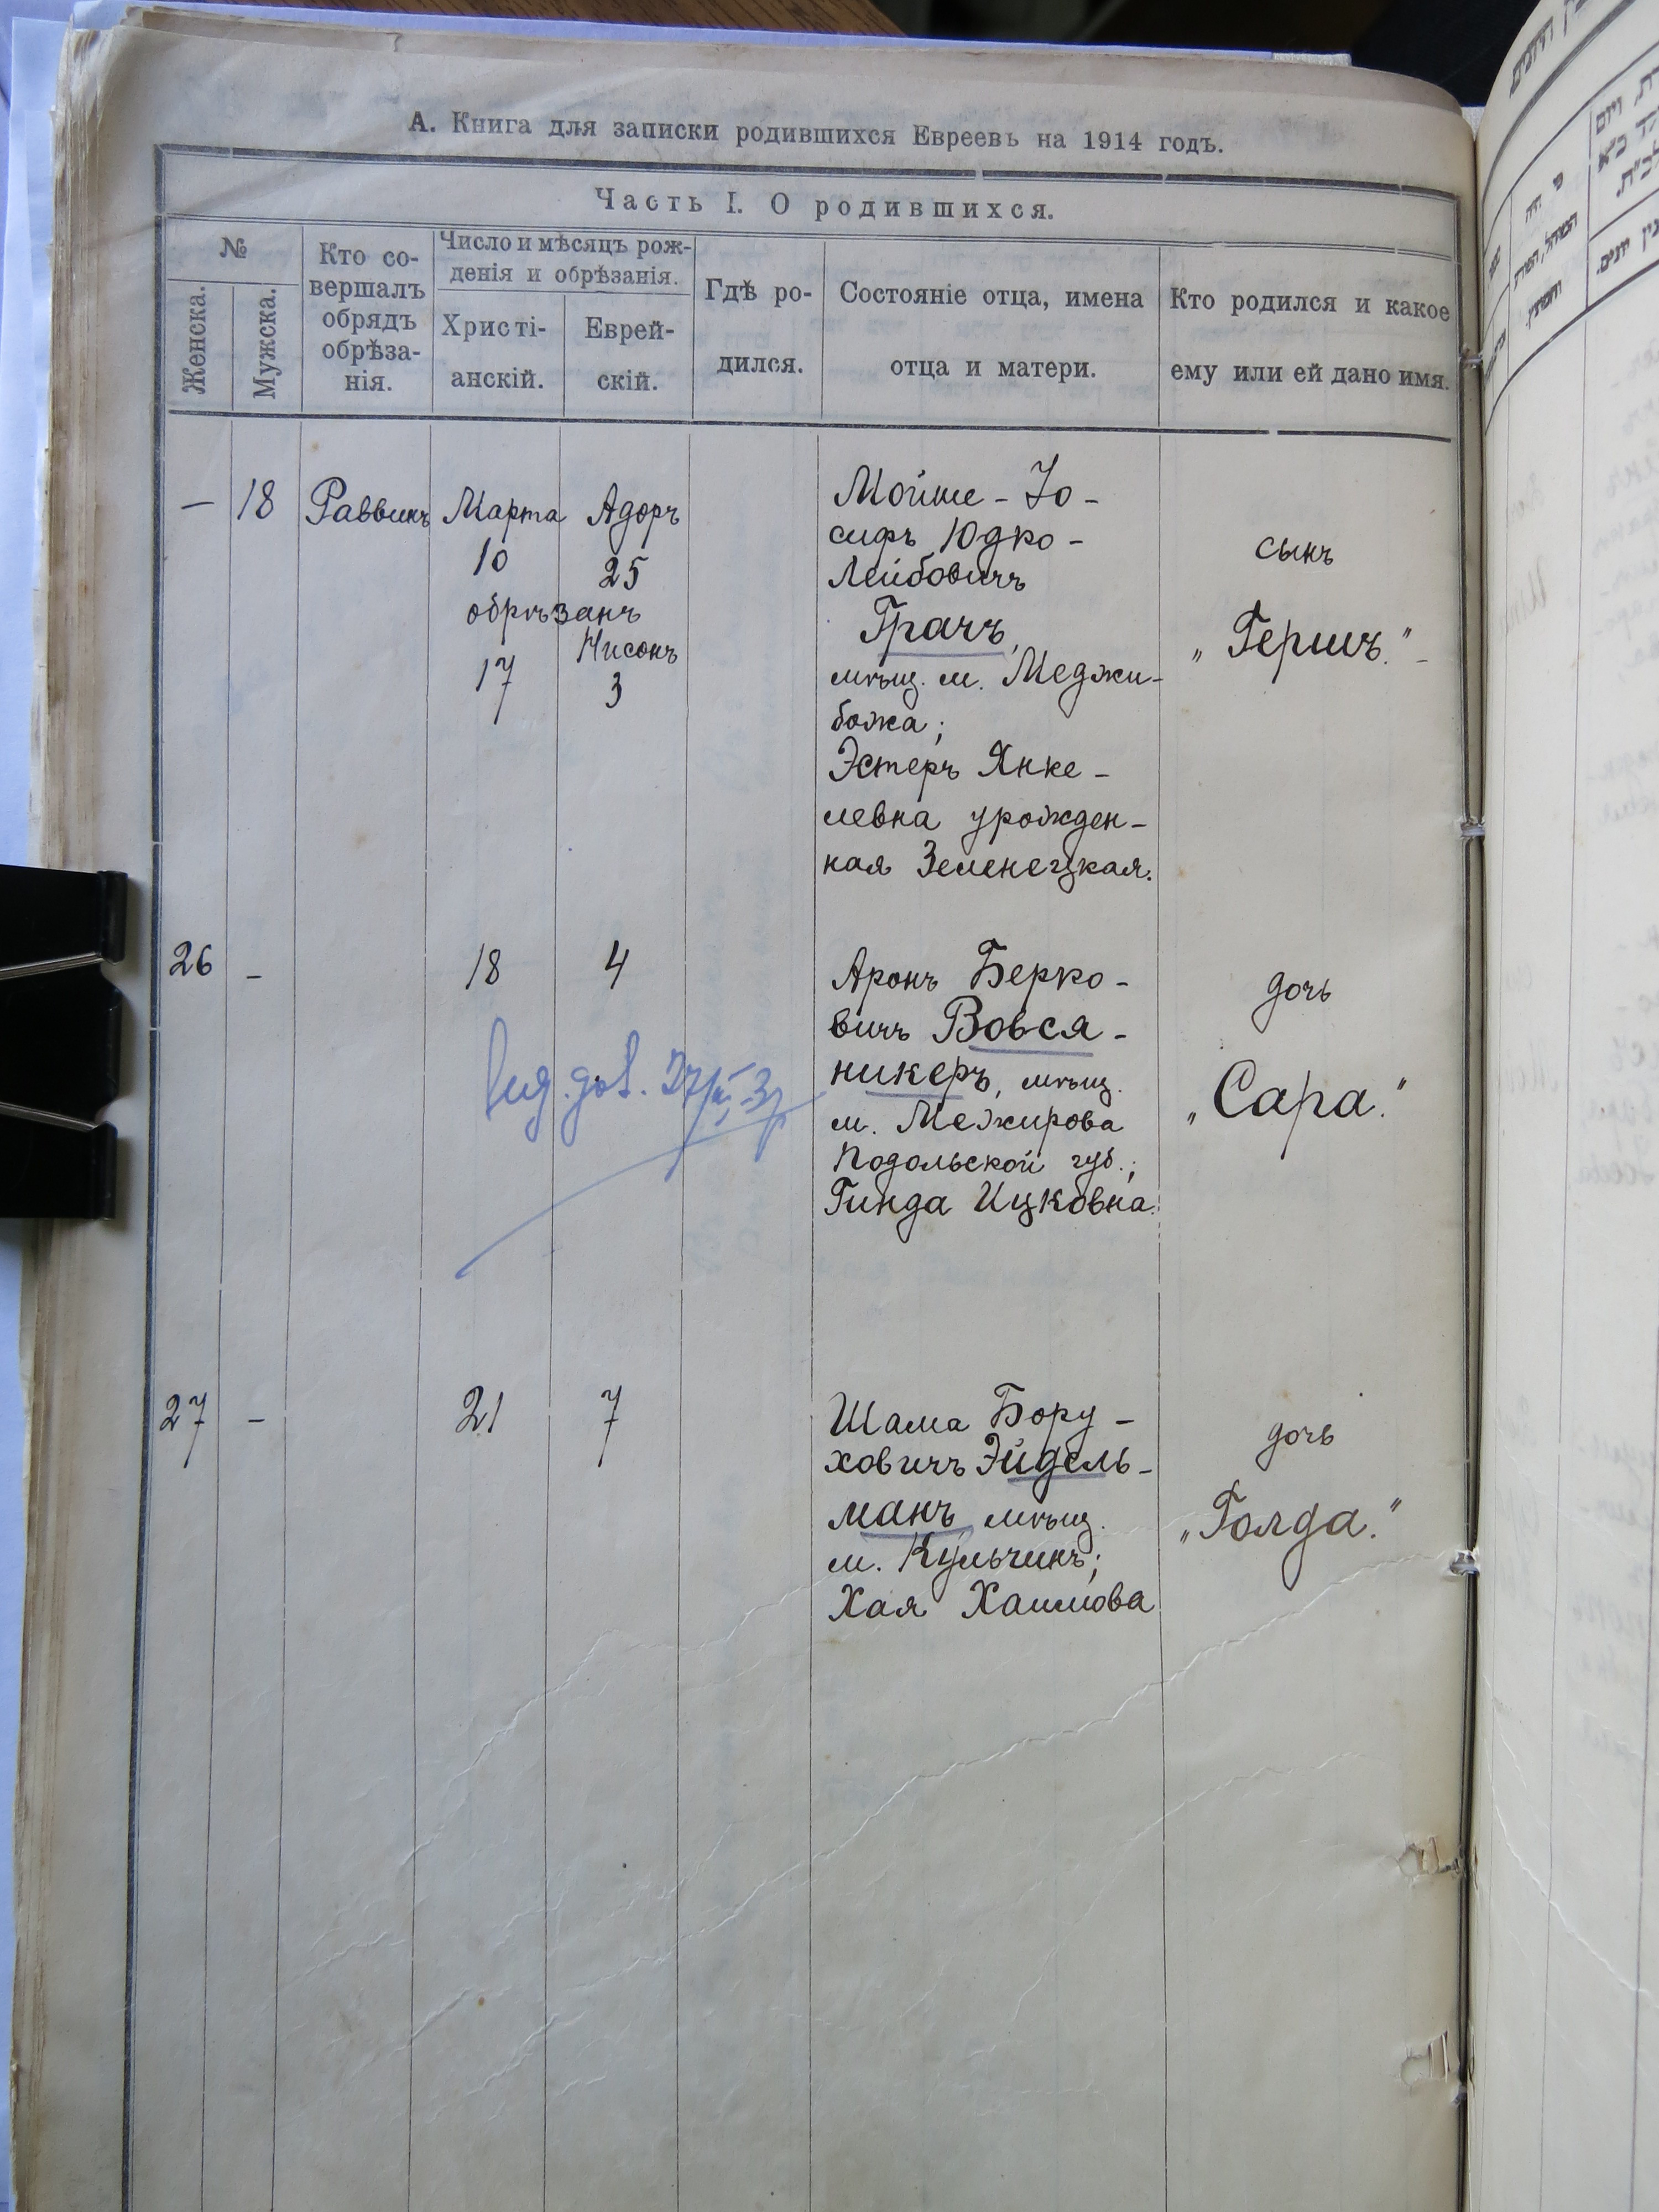 А. Книга для записки родившихся Евреевъ на 1914 годъ.
Часть I. О родившихся.
№
Женска.
Мужска.
Кто со-
вершалъ
обрядъ
обрѣза-
нія.
Число и мѣсяцъ рож-
денія и обрѣзанія.
Христі-
анскій.
Еврей-
скій.
Гдѣ ро-
дился.
Состояніе отца, имена
отца и матери.
Кто родился и какое
ему или ей дано имя.
— 18 Раввинъ Марта Адоръ
10 25
обрѣзанъ
Нисонъ
17 3
Мойше-Іо-
сифъ Юдко-
Лейбовичъ
Грачъ,
мѣщ. м. Меджи-
божа;
Эстеръ Янке-
левна урожден-
ная Зеленецкая.
сынъ
„Гершъ.“
26 - 18 4
Аронъ Берко-
вичъ Вовся-
никеръ, мѣщ.
м. Межирова
Подольской губ.;
Гинда Ицковна.
дочь
„Сара.“
27 - 21 7
Шама Бору-
ховичъ Эйдель-
манъ мѣщ.
м. Кульчинъ;
Хая Хаимова
дочь
„Голда.“